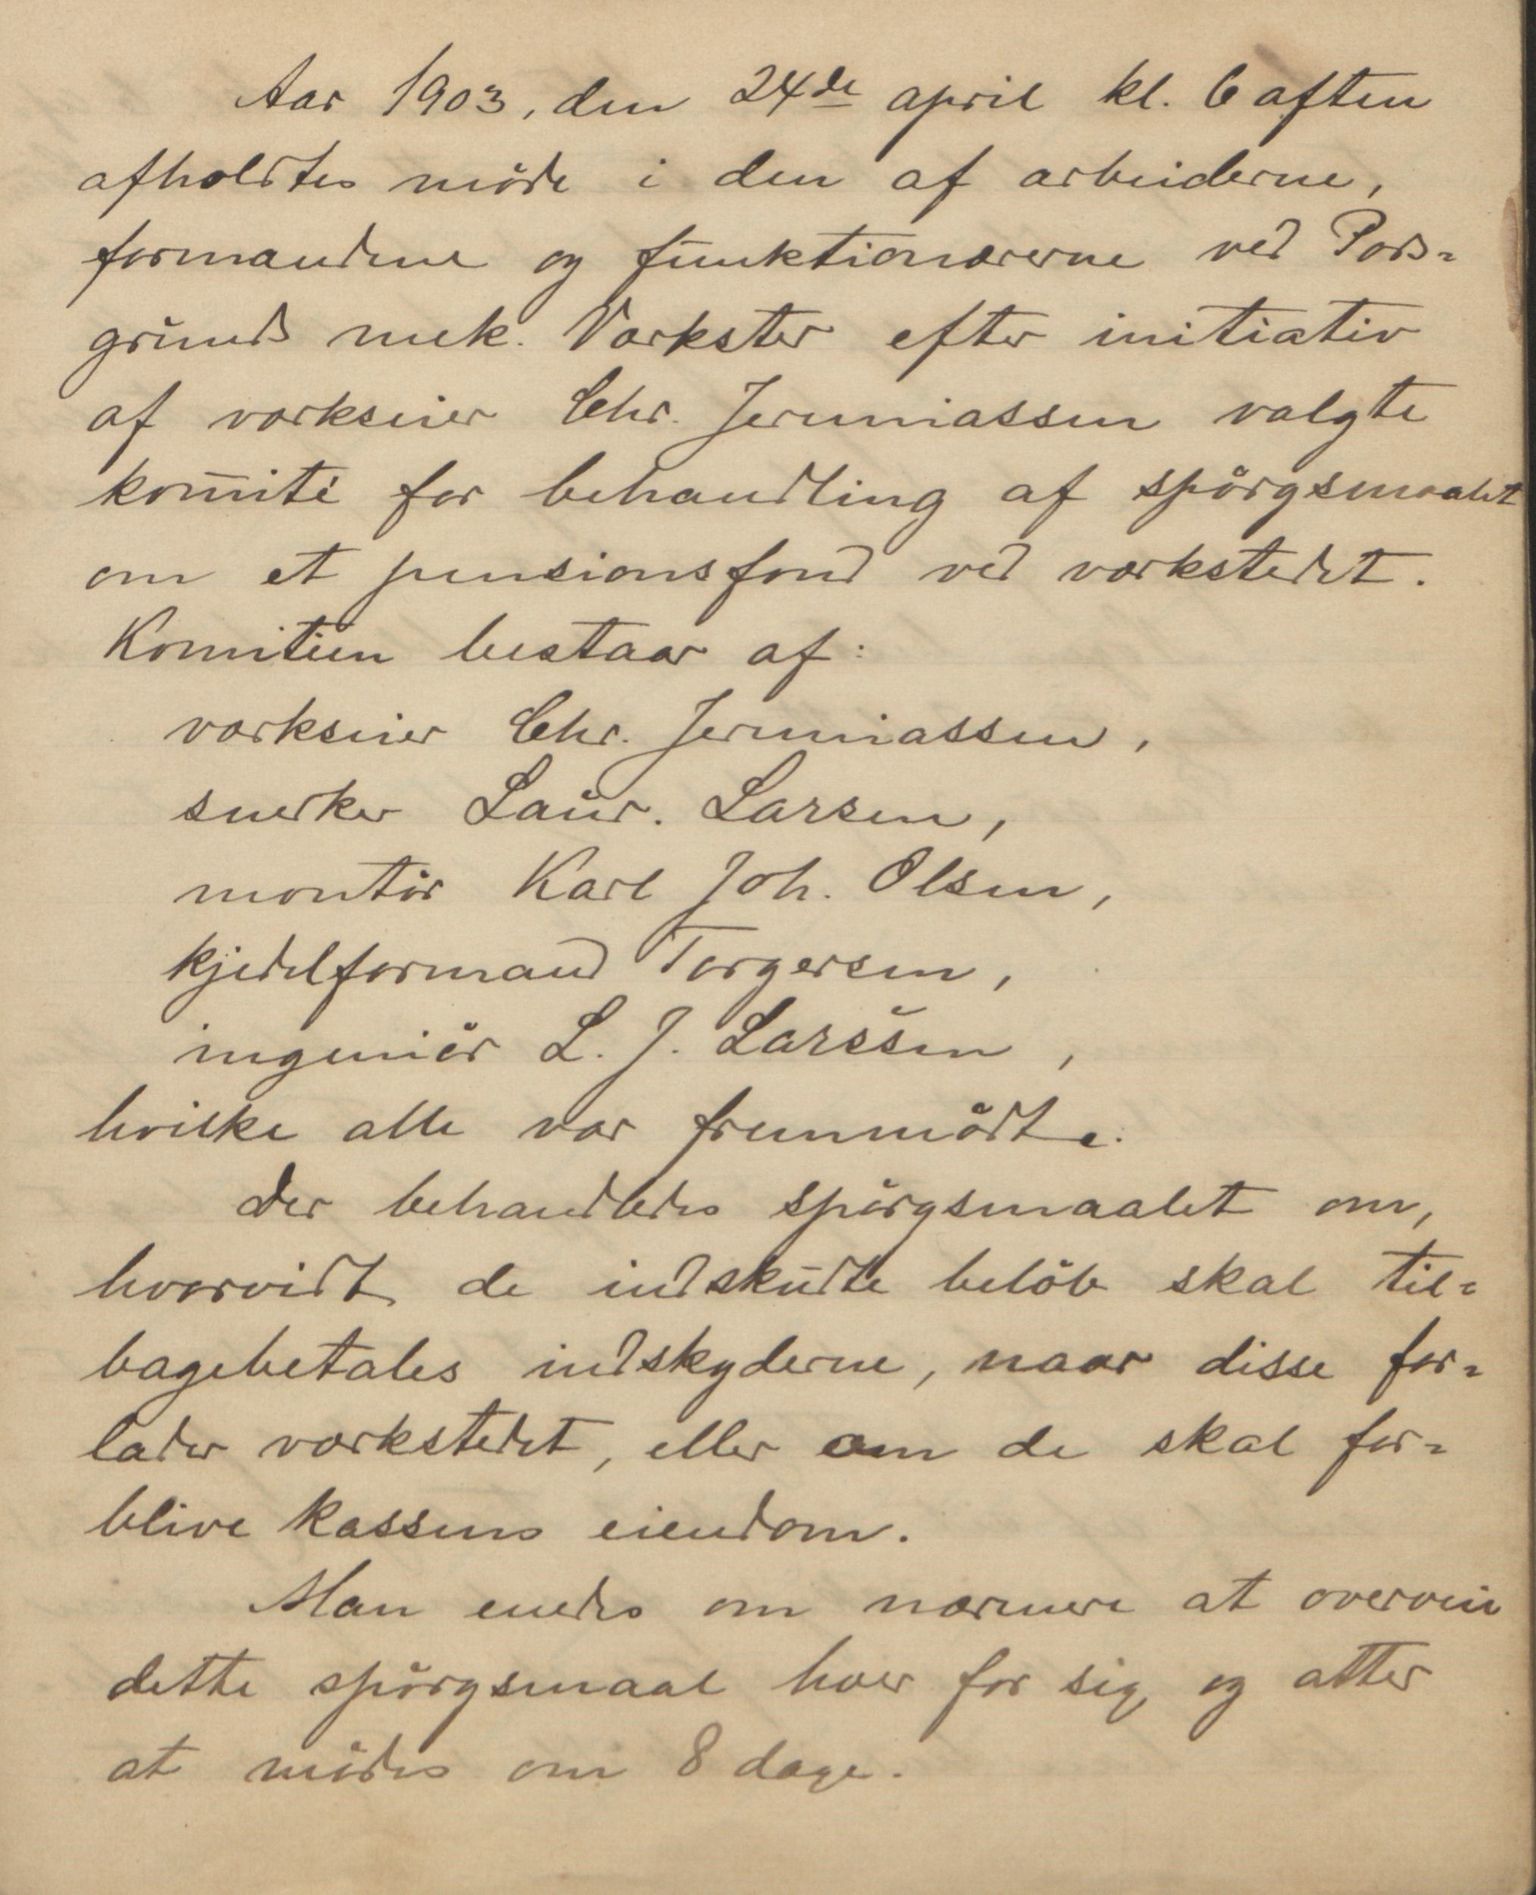 Aar 1903, den 24de april kl. 6 aften
afholdtes möde i den af arbeiderne,
formændene og funktionærerne ved Pors=
grunds mek. Værksted efter initiativ
af værkseier Chr. Jeremiassen valgte
komité for behandling af spörgsmaalet
om et pensionsfond ved værkstedet.
Komitéen bestaar af:
værkseier Chr. Jeremiassen,
snedker Laur. Larsen,
montör Karl Joh. Olsen,
kjedelformand Torgersen,
ingeniör L. J. Larssen,
hvilke alle var fremmödte.
Der behandledes spörgsmaalet om,
hvorvidt de indskudte belöb skal til=
bagebetales indskyderne, naar disse for=
lader værkstedet, eller om de skal for=
blive kassens eiendom.
Man enedes om nærmere at overveie
dette spörgsmaal hver for sig og atter
at mödes om 8 dage.